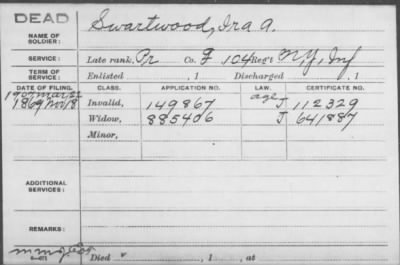 DEAD
NAME OF SOLDIER: Swartwood, Ira A.
SERVICE: Late rank, Pr Co. F, 104 Reg't N.Y. Inf
TERM OF SERVICE: Enlisted , 1 Discharged , 1
DATE OF FILING. CLASS. APPLICATION NO. LAW. CERTIFICATE NO.
Invalid, 149867 age J 112329
1869 Nov 18 Widow, 885406 J 641887
Minor,
ADDITIONAL SERVICES:
REMARKS:
Died , 1 , at